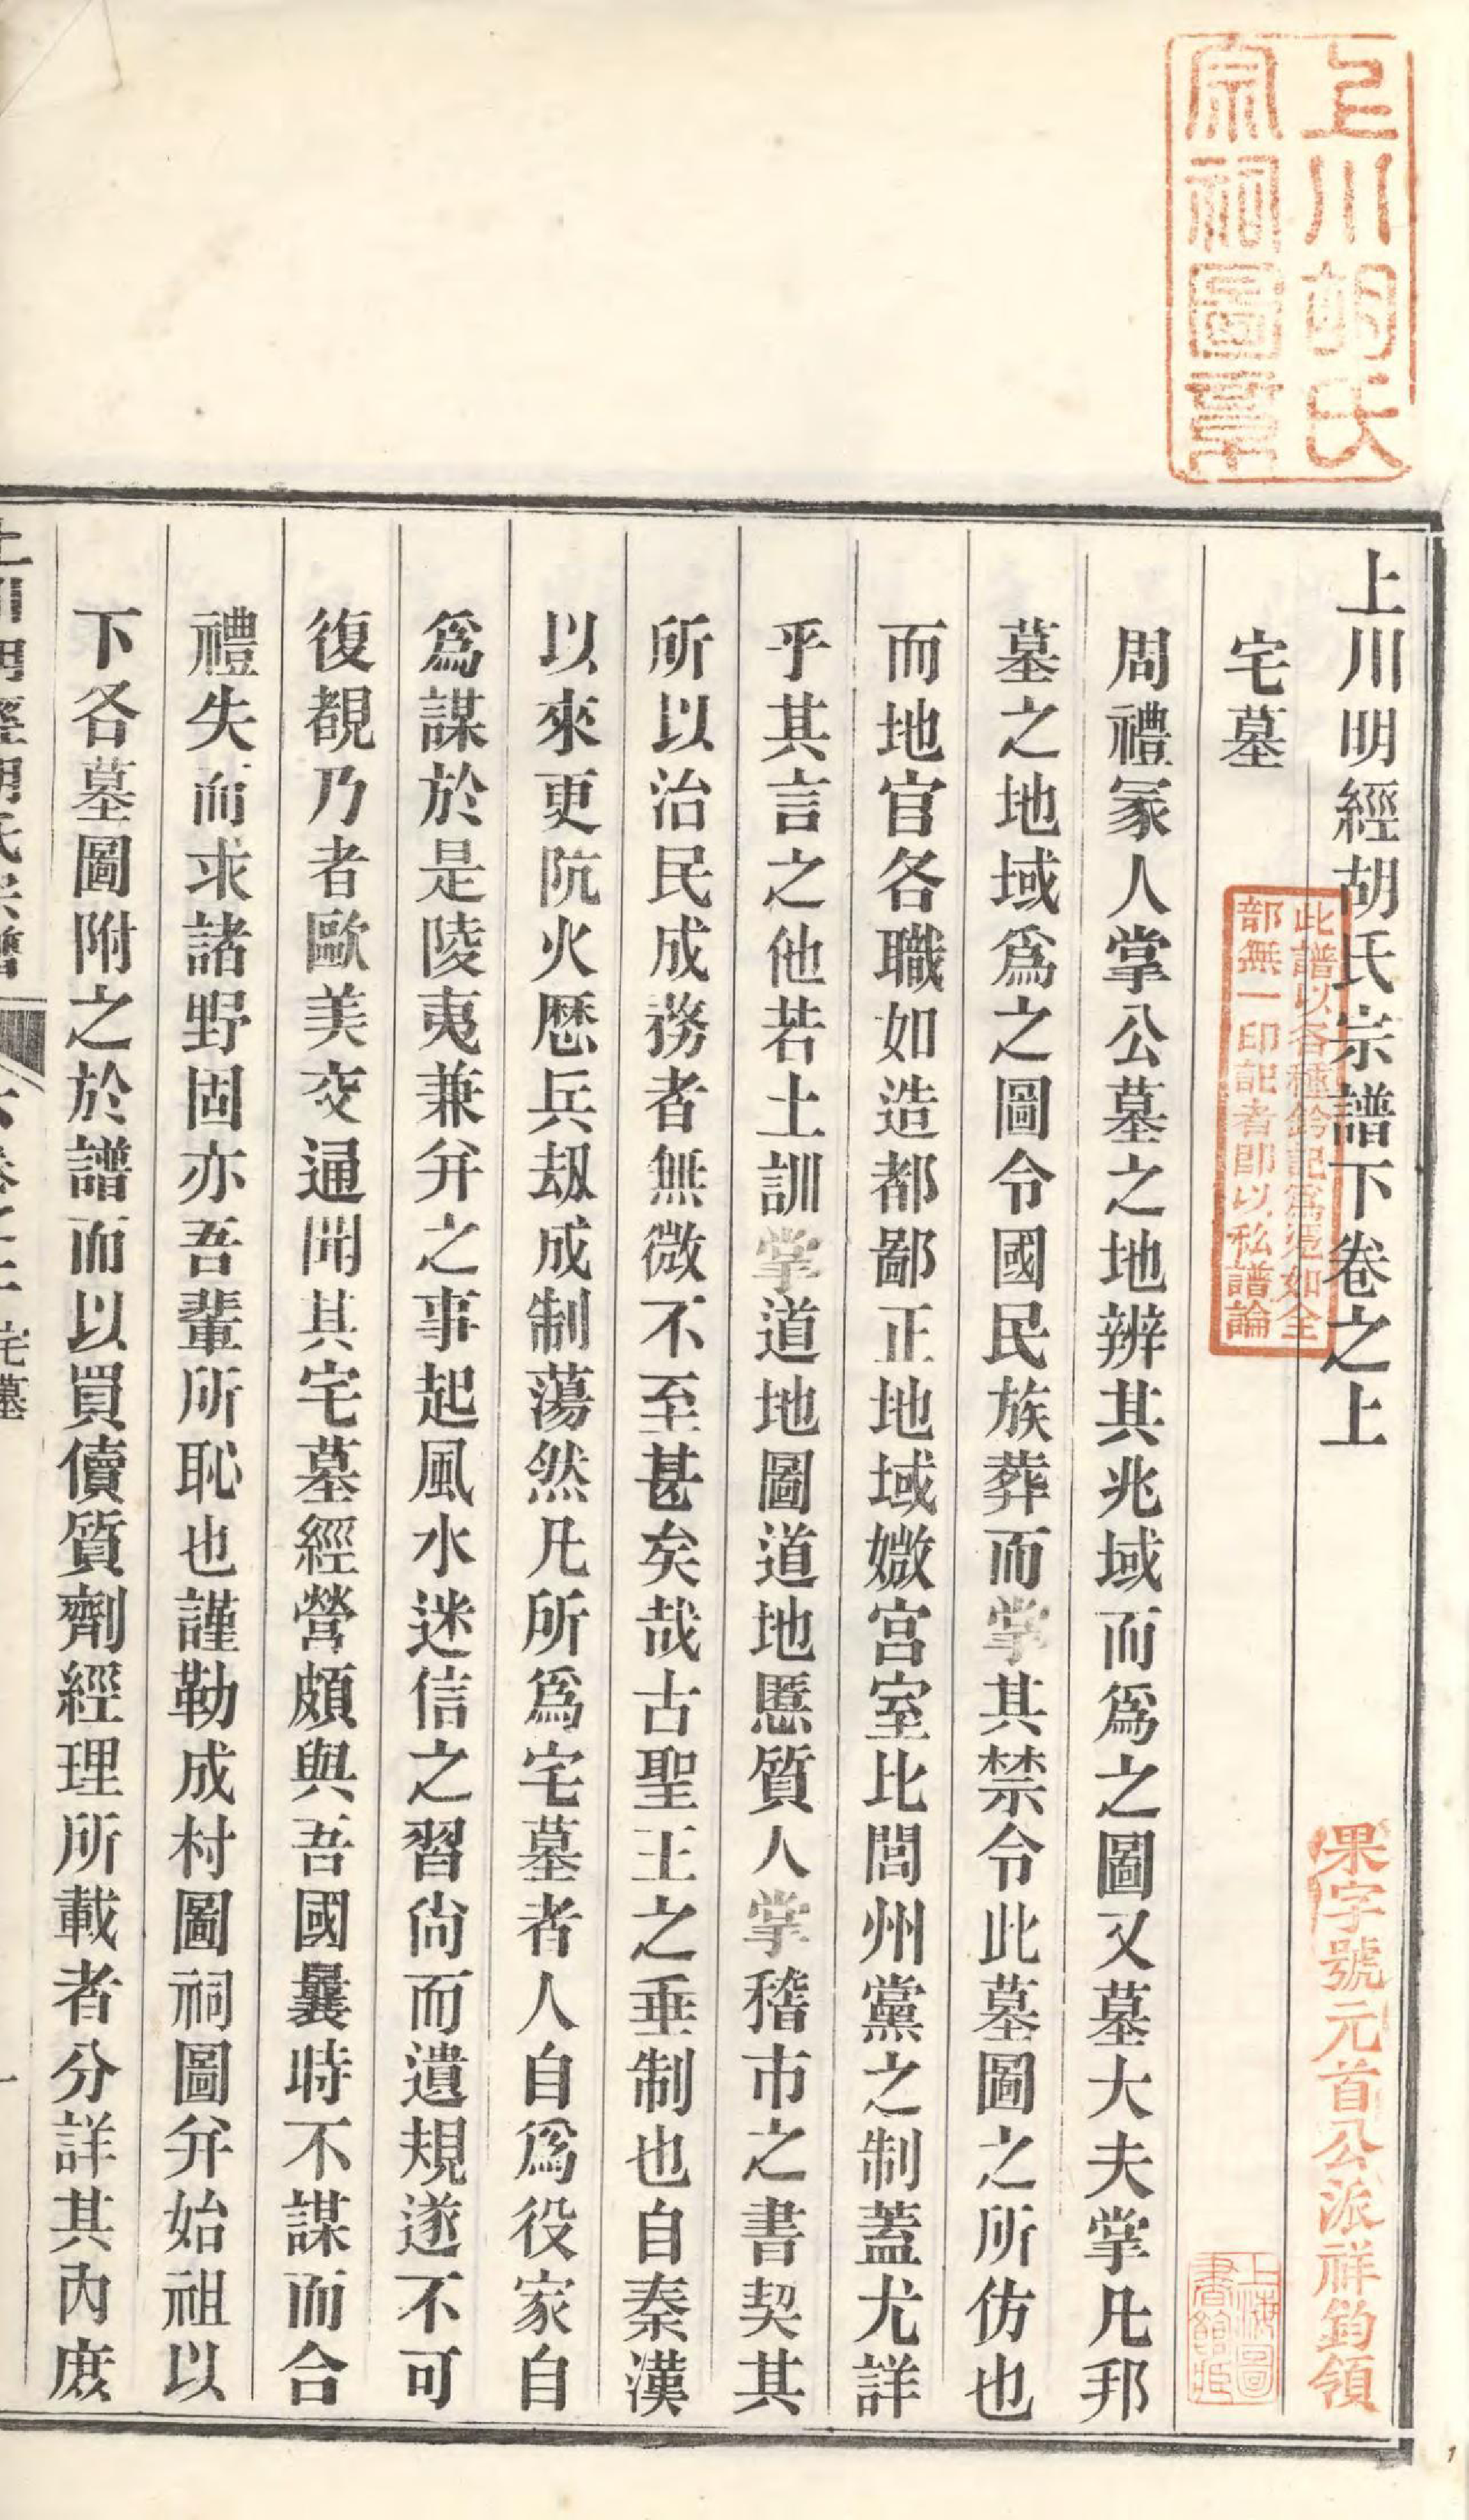 上川胡氏
宗祠圖章
上川明經胡氏宗譜下卷之上
果字號元首公派祥鈞領
此譜以各種鈐記爲憑如全
部無一印記者卽以私譜論
宅墓
上海圖
書館藏
周禮冢人掌公墓之地辨其兆域而爲之圖又墓大夫掌凡邦
墓之地域爲之圖令國民族葬而掌其禁令此墓圖之所仿也
而地官各職如造都鄙正地域媺宮室比閭州黨之制蓋尤詳
乎其言之他若土訓掌道地圖道地慝質人掌稽市之書契其
所以治民成務者無微不至甚矣哉古聖王之垂制也自秦漢
以來更阬火歷兵刼成制蕩然凡所爲宅墓者人自爲役家自
爲謀於是陵夷兼并之事起風水迷信之習尙而遺規遂不可
復覩乃者歐美交通開其宅墓經營頗與吾國曩時不謀而合
禮失而求諸野固亦吾輩所恥也謹勒成村圖祠圖弁始祖以
下各墓圖附之於譜而以買儥質劑經理所載者分詳其內庶
宅墓
一